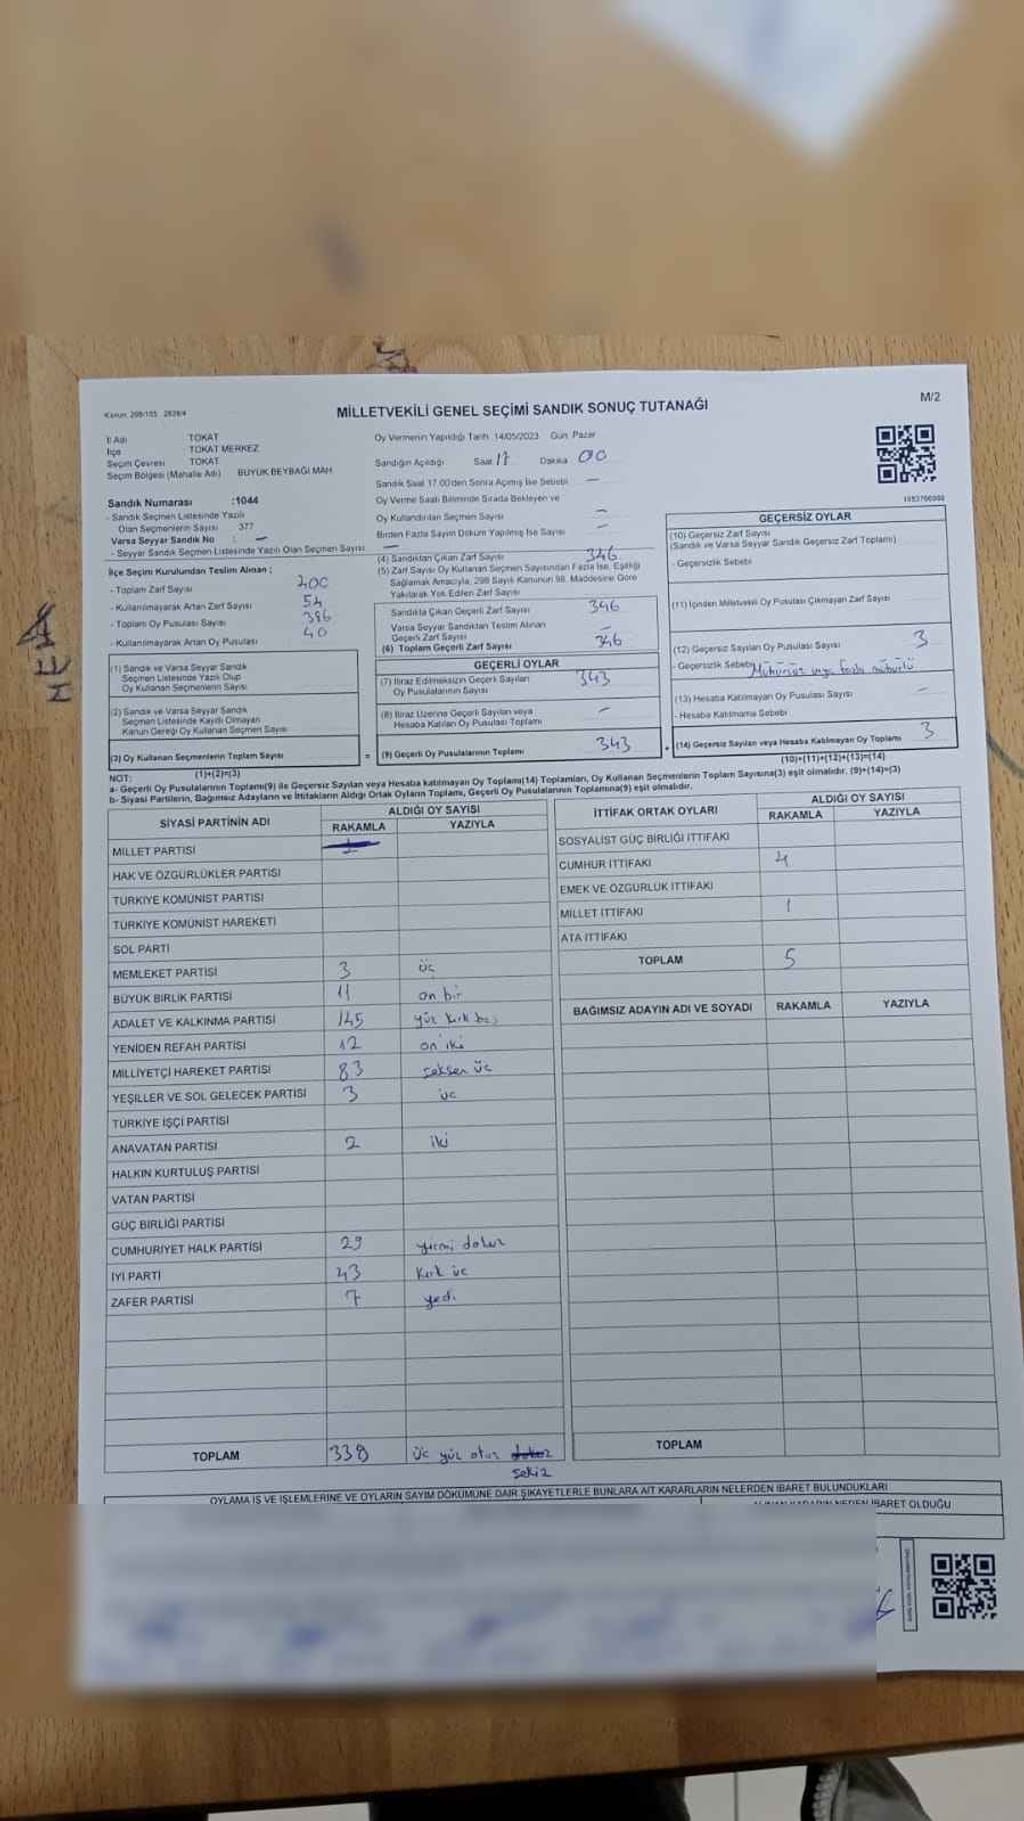 Kanun: 298/105 2839/4
MİLLETVEKİLİ GENEL SEÇİMİ SANDIK SONUÇ TUTANAĞI
M/2
İl Adı TOKAT
İlçe TOKAT MERKEZ
Seçim Çevresi TOKAT
Seçim Bölgesi (Mahalle Adı) BÜYÜK BEYBAĞI MAH.
Oy Vermenin Yapıldığı Tarih 14/05/2023 Gün Pazar
Sandığın Açıldığı Saat 17 Dakika 00
Sandık Saat 17.00'den Sonra Açılmış İse Sebebi —
Oy Verme Saati Bitiminde Sırada Bekleyen ve
Oy Kullandırılan Seçmen Sayısı —
Birden Fazla Sayım Döküm Yapılmış İse Sayısı —
Sandık Numarası :1044
- Sandık Seçmen Listesinde Yazılı
Olan Seçmenlerin Sayısı 377
Varsa Seyyar Sandık No : —
- Seyyar Sandık Seçmen Listesinde Yazılı Olan Seçmen Sayısı —
İlçe Seçim Kurulundan Teslim Alınan ;
- Toplam Zarf Sayısı 400
- Kullanılmayarak Artan Zarf Sayısı 54
- Toplam Oy Pusulası Sayısı 386
- Kullanılmayarak Artan Oy Pusulası 40
(1) Sandık ve Varsa Seyyar Sandık
Seçmen Listesinde Yazılı Olup
Oy Kullanan Seçmenlerin Sayısı
(2) Sandık ve Varsa Seyyar Sandık
Seçmen Listesinde Kayıtlı Olmayan
Kanun Gereği Oy Kullanan Seçmen Sayısı
(3) Oy Kullanan Seçmenlerin Toplam Sayısı
(1)+(2)=(3)
(4) Sandıktan Çıkan Zarf Sayısı 346
(5) Zarf Sayısı Oy Kullanan Seçmen Sayısından Fazla İse, Eşitliği
Sağlamak Amacıyla, 298 Sayılı Kanunun 98. Maddesine Göre
Yakılarak Yok Edilen Zarf Sayısı
Sandıkta Çıkan Geçerli Zarf Sayısı 346
Varsa Seyyar Sandıktan Teslim Alınan
Geçerli Zarf Sayısı —
(6) Toplam Geçerli Zarf Sayısı 346
GEÇERLİ OYLAR
(7) İtiraz Edilmeksizin Geçerli Sayılan
Oy Pusulalarının Sayısı 343
(8) İtiraz Üzerine Geçerli Sayılan veya
Hesaba Katılan Oy Pusulası Toplamı —
= (9) Geçerli Oy Pusulalarının Toplamı 343
1053700008
GEÇERSİZ OYLAR
(10) Geçersiz Zarf Sayısı
(Sandık ve Varsa Seyyar Sandık Geçersiz Zarf Toplamı)
- Geçersizlik Sebebi
(11) İçinden Milletvekili Oy Pusulası Çıkmayan Zarf Sayısı
(12) Geçersiz Sayılan Oy Pusulası Sayısı 3
- Geçersizlik Sebebi Mühürsüz veya fazla mühürlü
(13) Hesaba Katılmayan Oy Pusulası Sayısı —
- Hesaba Katılmama Sebebi
+ (14) Geçersiz Sayılan veya Hesaba Katılmayan Oy Toplamı 3
(10)+(11)+(12)+(13)=(14)
NOT:
a- Geçerli Oy Pusulalarının Toplamı(9) ile Geçersiz Sayılan veya Hesaba katılmayan Oy Toplamı(14) Toplamları, Oy Kullanan Seçmenlerin Toplam Sayısına(3) eşit olmalıdır. (9)+(14)=(3)
b- Siyasi Partilerin, Bağımsız Adayların ve İttifakların Aldığı Ortak Oyların Toplamı, Geçerli Oy Pusulalarının Toplamına(9) eşit olmalıdır.
SİYASİ PARTİNİN ADI ALDIĞI OY SAYISI
RAKAMLA YAZIYLA
MİLLET PARTİSİ
HAK VE ÖZGÜRLÜKLER PARTİSİ
TÜRKİYE KOMÜNİST PARTİSİ
TÜRKİYE KOMÜNİST HAREKETİ
SOL PARTİ
MEMLEKET PARTİSİ 3 üç
BÜYÜK BİRLİK PARTİSİ 11 on bir
ADALET VE KALKINMA PARTİSİ 145 yüz kırk beş
YENİDEN REFAH PARTİSİ 12 on iki
MİLLİYETÇİ HAREKET PARTİSİ 83 seksen üç
YEŞİLLER VE SOL GELECEK PARTİSİ 3 üç
TÜRKİYE İŞÇİ PARTİSİ
ANAVATAN PARTİSİ 2 iki
HALKIN KURTULUŞ PARTİSİ
VATAN PARTİSİ
GÜÇ BİRLİĞİ PARTİSİ
CUMHURİYET HALK PARTİSİ 29 yirmi dokuz
İYİ PARTİ 43 kırk üç
ZAFER PARTİSİ 7 yedi
TOPLAM 338 üç yüz otuz dokuz
sekiz
İTTİFAK ORTAK OYLARI ALDIĞI OY SAYISI
RAKAMLA YAZIYLA
SOSYALİST GÜÇ BİRLİĞİ İTTİFAKI
CUMHUR İTTİFAKI 4
EMEK VE ÖZGÜRLÜK İTTİFAKI
MİLLET İTTİFAKI 1
ATA İTTİFAKI
TOPLAM 5
BAĞIMSIZ ADAYIN ADI VE SOYADI RAKAMLA YAZIYLA
TOPLAM
OYLAMA İŞ VE İŞLEMLERİNE VE OYLARIN SAYIM DÖKÜMÜNE DAİR ŞİKAYETLERLE BUNLARA AİT KARARLARIN NELERDEN İBARET BULUNDUKLARI
ALINAN KARARIN NEDEN İBARET OLDUĞU